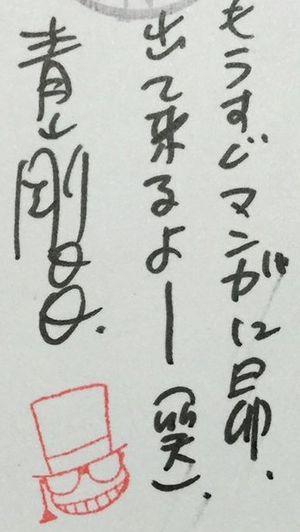 もうすぐマンガに昴、
出て来るよー(笑)、
青山剛昌.